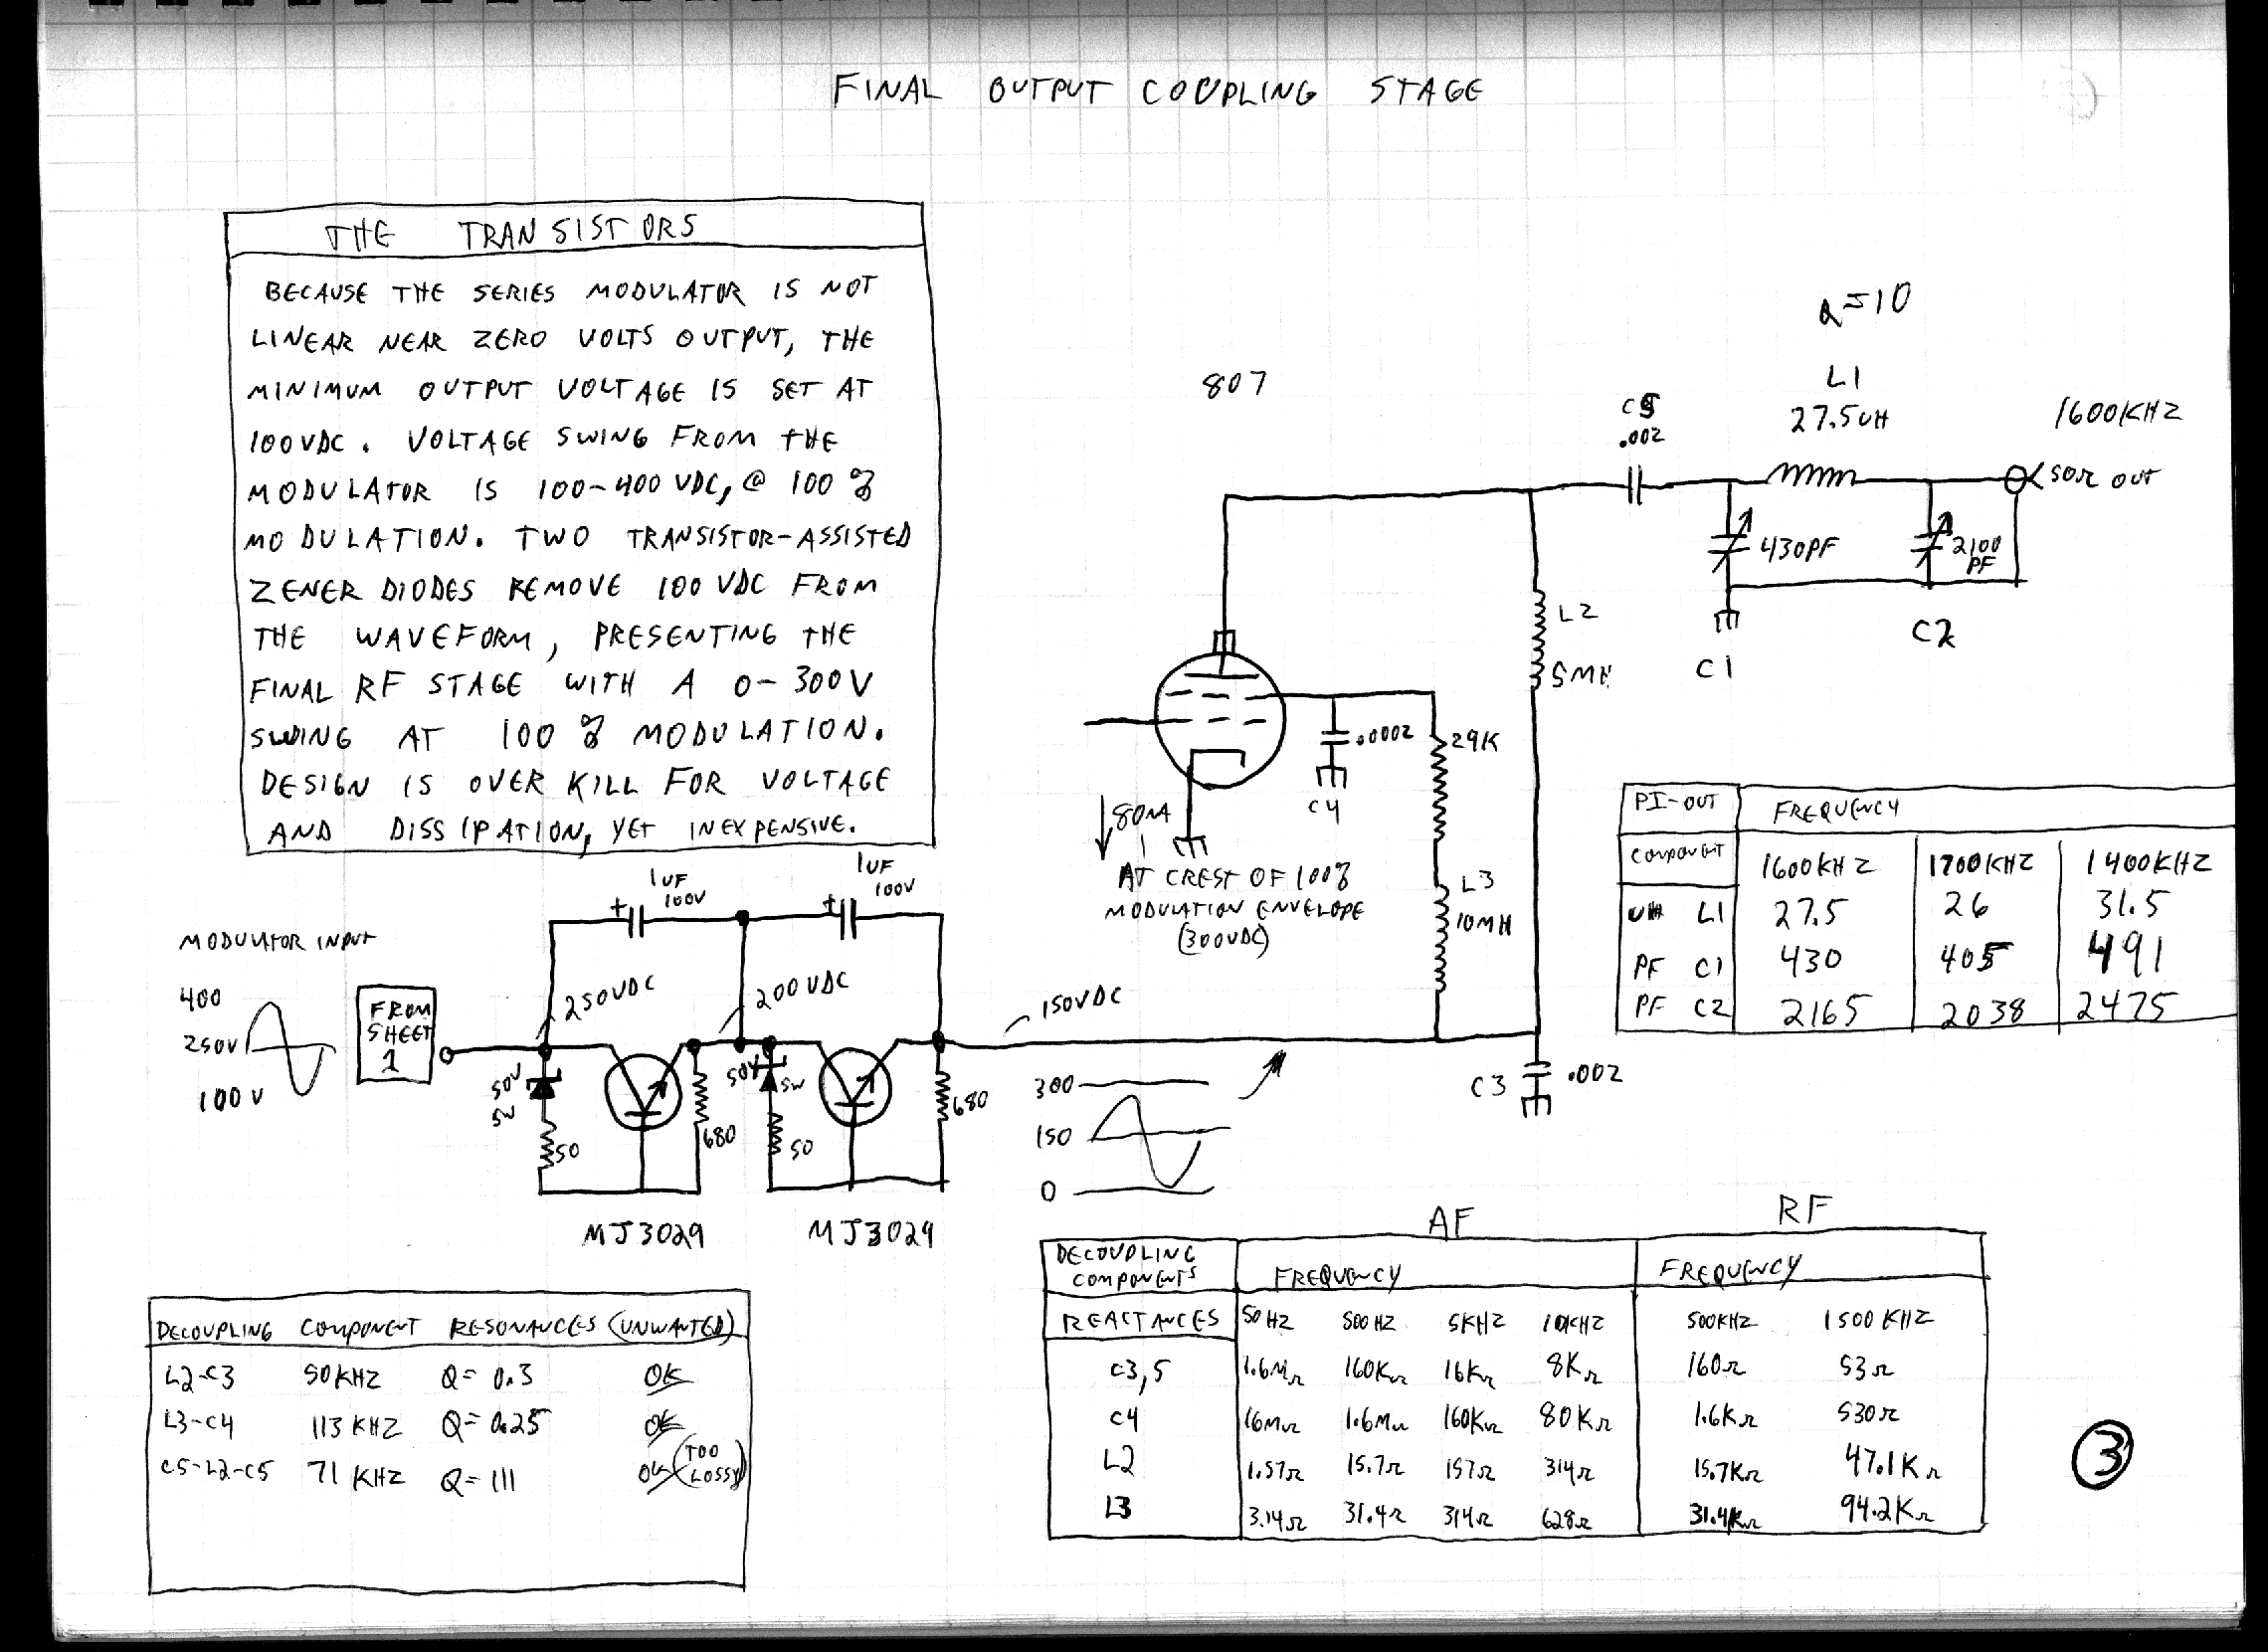 FINAL OUTPUT COUPLING STAGE
THE TRANSISTORS
BECAUSE THE SERIES MODULATOR IS NOT
LINEAR NEAR ZERO VOLTS OUTPUT, THE
MINIMUM OUTPUT VOLTAGE IS SET AT
100VDC. VOLTAGE SWING FROM THE
MODULATOR IS 100-400 VDC, @ 100%
MODULATION. TWO TRANSISTOR-ASSISTED
ZENER DIODES REMOVE 100 VDC FROM
THE WAVEFORM, PRESENTING THE
FINAL RF STAGE WITH A 0-300V
SWING AT 100% MODULATION.
DESIGN IS OVER KILL FOR VOLTAGE
AND DISSIPATION, YET INEXPENSIVE.
Q=10
L1
27.5UH
807
C5
.002
1600KHZ
50Ω OUT
430PF
2100
PF
C1
C2
L2
5MH
.0002
C4
29K
80MA
AT CREST OF 100%
MODULATION ENVELOPE
(300VDC)
L3
10MH
PI-OUT FREQUENCY
COMPONENT 1600KHZ 1700KHZ 1400KHZ
UH L1 27.5 26 31.5
PF C1 430 405 491
PF C2 2165 2038 2475
1UF
100V
1UF
100V
MODULATOR INPUT
400
250V
100V
FROM
SHEET
1
250VDC
200VDC
150VDC
50V
5W
50
680
50V
5W
50
680
MJ3029 MJ3029
300
150
0
C3 .002
AF RF
DECOUPLING
COMPONENTS FREQUENCY FREQUENCY
REACTANCES 50HZ 500HZ 5KHZ 10KHZ 500KHZ 1500KHZ
C3,5 1.6MΩ 160KΩ 16KΩ 8KΩ 160Ω 53Ω
C4 16MΩ 1.6MΩ 160KΩ 80KΩ 1.6KΩ 530Ω
L2 1.57Ω 15.7Ω 157Ω 314Ω 15.7KΩ 47.1KΩ
L3 3.14Ω 31.4Ω 314Ω 628Ω 31.4KΩ 94.2KΩ
DECOUPLING COMPONENT RESONANCES (UNWANTED)
L2-C3 50KHZ Q=0.3 OK
L3-C4 113KHZ Q=0.25 OK
C5-L2-C5 71KHZ Q=111 OK (TOO LOSSY)
3